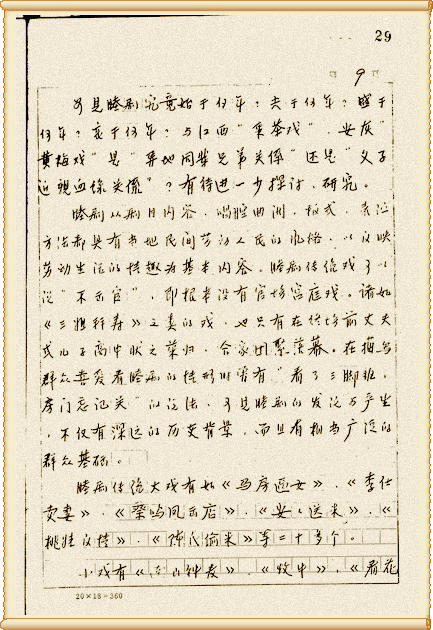 29
9
可见睦剧究竟始于何年？兴于何年？盛于
何年？衰于何年？与江西“采茶戏”、安庆“
黄梅戏”是“异地同辈兄弟关系”还是“父子
近亲血缘关系”？有待进一步探讨、研究。
睦剧从剧目内容、唱腔曲调、板式、表演
方法都具有本地民间劳动人民的风格，以反映
劳动生活的情趣为基本内容。睦剧传统戏可以
说“不示官”，即根本没有官场宫庭戏。诸如
《三 》之类的戏，也只有在终场前丈夫
或儿子高中状元荣归，合家团聚落幕。在描写
群众喜爱看睦剧的情形时常有“看了三脚班，
房门忘记关”的说法，可见睦剧的发展与产生
，不仅有深远的历史背景，而且有相当广泛的
群众基础。
睦剧传统大戏有如《马房逼女》、《李仕
卖妻》、《 凤 店》、《安安送米》、《
桃 》、《陈氏偷米》等三十多个。
小戏有《南山种麦》、《牧牛》、《看花
20×18=360